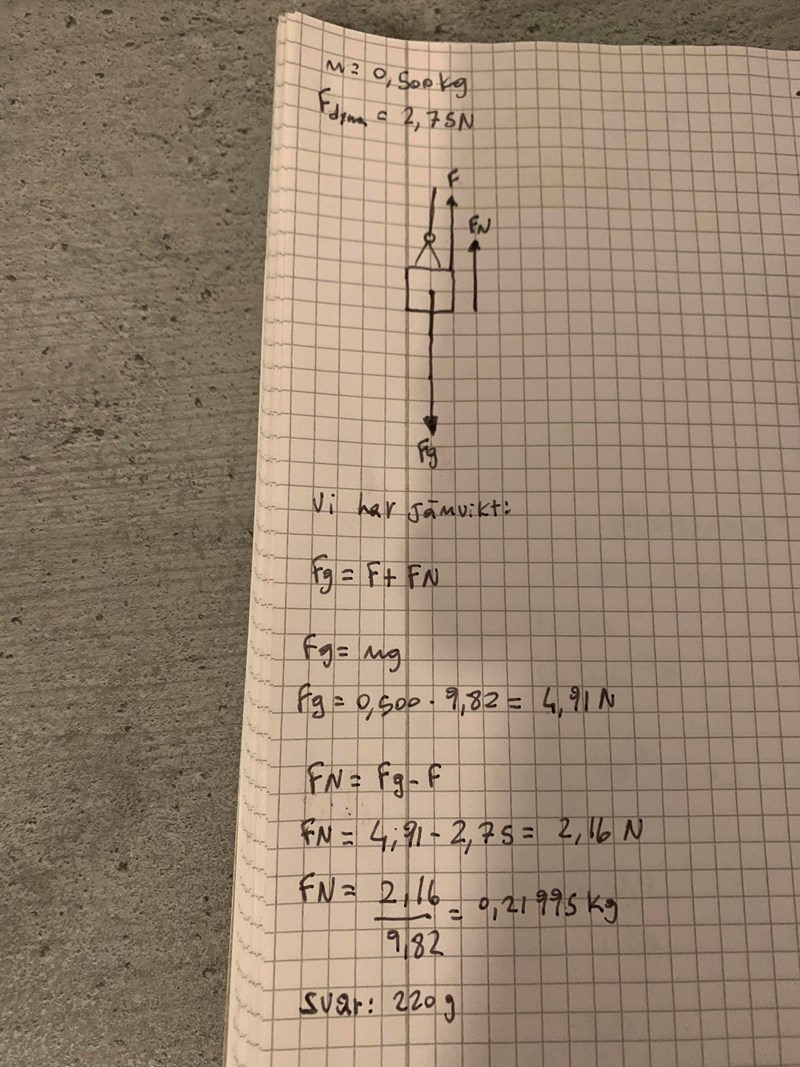 m = 0,500 kg
Fdyna = 2,75N
F
FN
Fg
Vi har jämvikt:
Fg = F + FN
Fg = mg
Fg = 0,500 · 9,82 = 4,91 N
FN = Fg - F
FN = 4,91 - 2,75 = 2,16 N
FN = 2,16 / 9,82 = 0,21995 kg
svar: 220 g